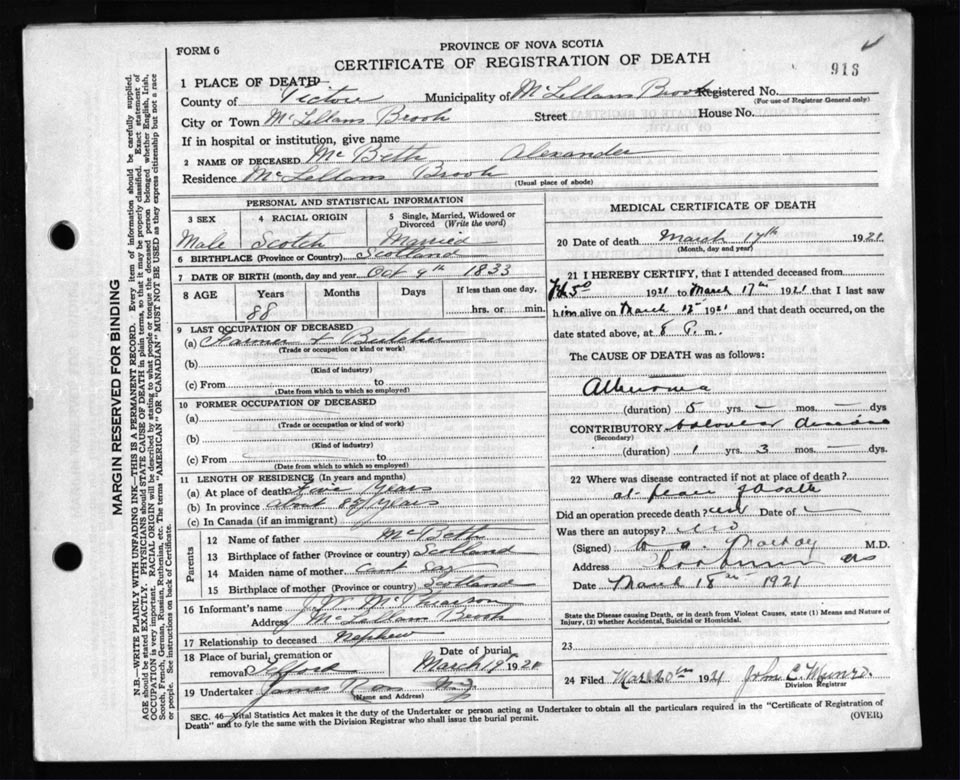 FORM 6
PROVINCE OF NOVA SCOTIA
CERTIFICATE OF REGISTRATION OF DEATH
913
1 PLACE OF DEATH
County of Pictou Municipality of McLellans Brook Registered No.
(For use of Registrar General only)
City or Town McLellans Brook Street House No.
If in hospital or institution, give name
2 NAME OF DECEASED McBeth Alexander
Residence McLellans Brook
(Usual place of abode)
PERSONAL AND STATISTICAL INFORMATION
3 SEX Male
4 RACIAL ORIGIN Scotch
5 Single, Married, Widowed or Divorced (Write the word) Married
6 BIRTHPLACE (Province or Country) Scotland
7 DATE OF BIRTH (month, day and year) Oct 9th 1833
8 AGE Years Months Days If less than one day,
88 hrs. or min.
9 LAST OCCUPATION OF DECEASED
(a) Farmer & Butcher
(Trade or occupation or kind of work)
(b)
(Kind of industry)
(c) From to
(Date from which to which so employed)
10 FORMER OCCUPATION OF DECEASED
(a)
(Trade or occupation or kind of work)
(b)
(Kind of industry)
(c) From to
(Date from which to which so employed)
11 LENGTH OF RESIDENCE (In years and months)
(a) At place of death Five Years
(b) In province about 87 years
(c) In Canada (if an immigrant)
Parents
12 Name of father McBeth
13 Birthplace of father (Province or country) Scotland
14 Maiden name of mother cant say
15 Birthplace of mother (Province or country) Scotland
16 Informant's name J. M. McPhearson
Address McLellans Brook
17 Relationship to deceased Nephew
18 Place of burial, cremation or removal
Date of burial March 19 1921
19 Undertaker James Ross
(Name and Address)
MEDICAL CERTIFICATE OF DEATH
20 Date of death March 17th 1921
(Month, day and year)
21 I HEREBY CERTIFY, that I attended deceased from
1921 to March 17th 1921 that I last saw
him alive on March 12th 1921 and that death occurred, on the
date stated above, at 8 P. m.
The CAUSE OF DEATH was as follows:
Atheroma
(duration) 5 yrs. – mos. – dys
CONTRIBUTORY valvular disease
(Secondary)
(duration) 1 yrs. 3 mos. – dys.
22 Where was disease contracted if not at place of death?
at place of death
Did an operation precede death? no Date of –
Was there an autopsy? No
(Signed) Mackay M.D.
Address Thorburn NS
Date March 18th 1921
State the Disease causing Death, or in death from Violent Causes, state (1) Means and Nature of Injury, (2) whether Accidental, Suicidal or Homicidal.
23
24 Filed Mar. 20th 1921 John C. Munro.
Division Registrar
SEC. 46—Vital Statistics Act makes it the duty of the Undertaker or person acting as Undertaker to obtain all the particulars required in the "Certificate of Registration of
Death" and to fyle the same with the Division Registrar who shall issue the burial permit.
(OVER)
MARGIN RESERVED FOR BINDING
N.B.—WRITE PLAINLY WITH UNFADING INK—THIS IS A PERMANENT RECORD. Every item of information should be carefully supplied.
AGE should be stated EXACTLY. PHYSICIANS should STATE CAUSE OF DEATH in plain terms, so that it may be properly classified. Exact statement of
OCCUPATION is very important. RACIAL ORIGIN will be described by stating to what people or tongue the deceased person belonged, whether English, Irish,
Scotch, French, German, Russian, Ruthenian, etc. The terms "AMERICAN" OR "CANADIAN" MUST NOT BE USED as they express citizenship but not a race
or people. See instructions on back of Certificate.